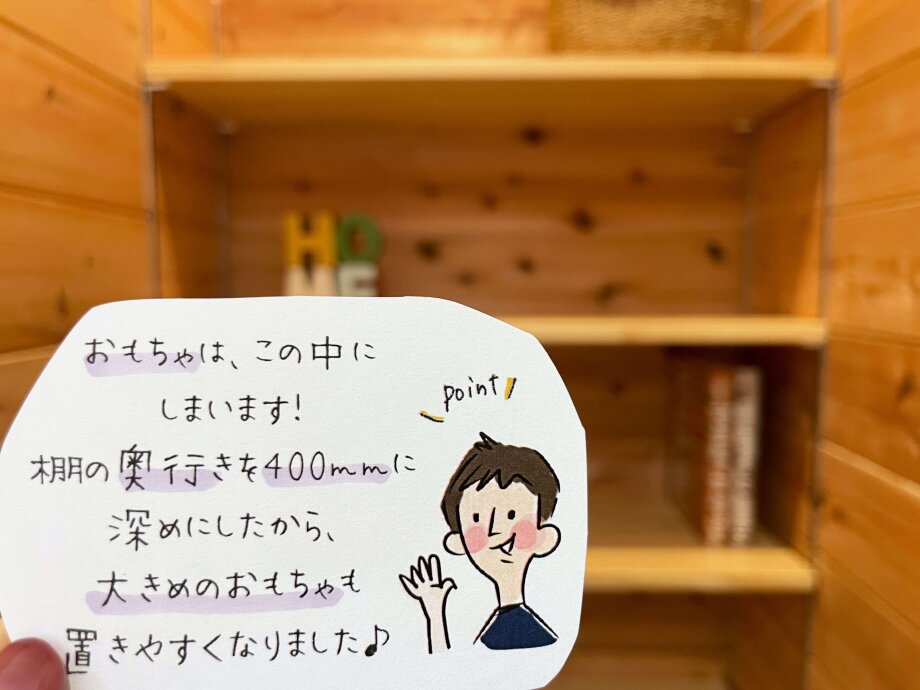 HO
ME
おもちゃは、この中に
しまいます!
棚の奥行きを400mmに
深めにしたから、
大きめのおもちゃも
置きやすくなりました♪
point